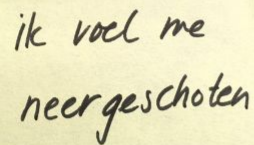 ik voel me
neergeschoten